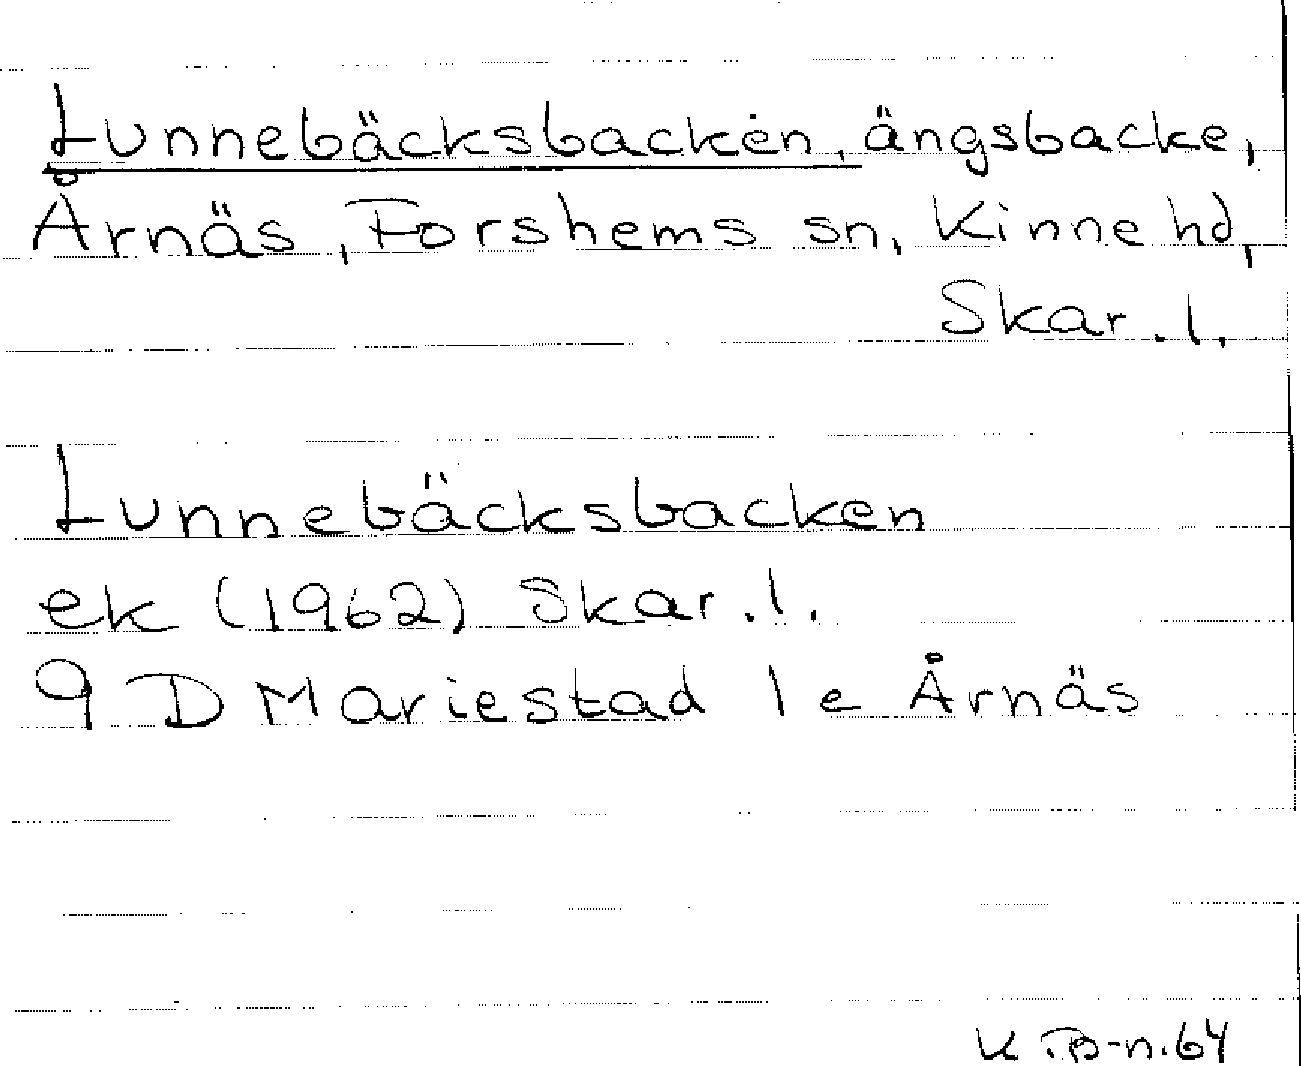 Lunnebäcksbacken, ängsbacke,
Årnäs, Forshems sn, Kinne hd,
Skar. l.
Lunnebäcksbacken
ek (1962) Skar. l.
9 D Mariestad 1 e Årnäs
K. B-n. 64